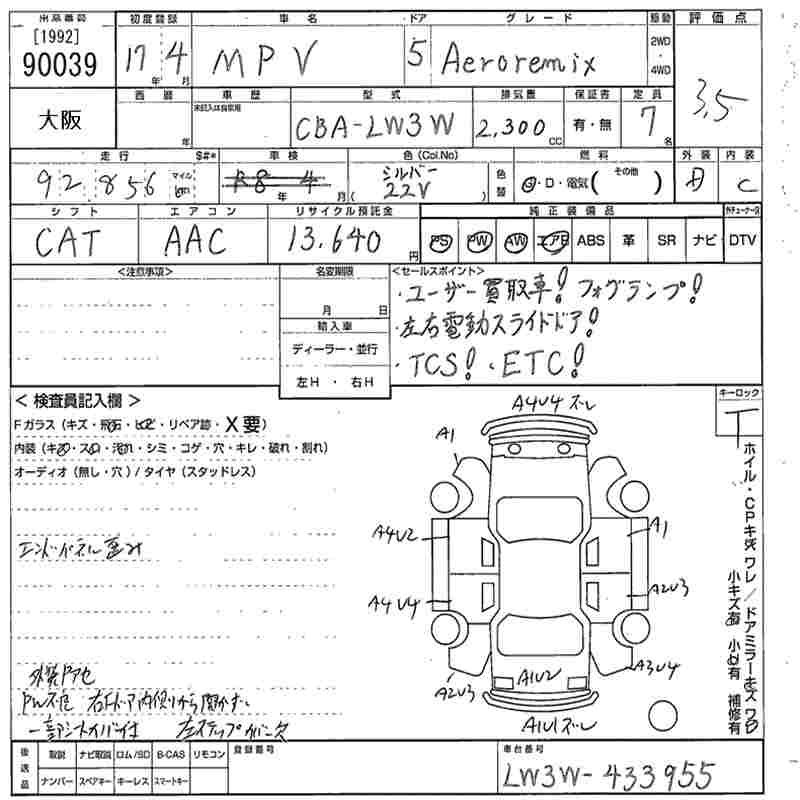 出品番号 初度登録 車名 ドア グレード 駆動 評価点
[1992]
90039 17年 4月 MPV 5 Aeroremix 2WD・4WD 3.5
大阪 西暦 年 車歴 未記入は自家用 型式 排気量 保証書 定員
CBA-LW3W 2,300cc 有・無 7名
走行 $#* 車検 色(Col.No) 燃料 外装 内装
92,856 マイル km R8年 4月 シルバー 22V 色替 G・D・電気( その他 ) D C
シフト エアコン リサイクル預託金 純正装備品
CAT AAC 13,640円 PS PW AW エアB ABS 革 SR ナビ DTV
<注意事項> 名変期限 <セールスポイント>
月 日 ・ユーザー買取車! フォグランプ!
輸入車 ・左右電動スライドドア!
ディーラー・並行 ・TCS! ・ETC!
左H・右H
<検査員記入欄> キーロック
Fガラス(キズ・飛石・ヒビ・リペア跡・X要) T
内装(キズ・スレ・汚れ・シミ・コゲ・穴・キレ・破れ・割れ)
オーディオ(無し・穴)/タイヤ(スタッドレス)
A4V4 ズレ
A1
A4V2 A1
A4V4 A2V3
A2V3 A1V2 A3V4
A1V1ズレ
ホイル・CPキズ ワレ/ドアミラーキズ ワレ
小キズ有 小凹有 補修有
エンドパネル歪み
外装ドアセ
PW不良 右Fドア内側から開かず。
一部シートカバー付 左ステップカバー欠
後送品 取説 ナビ取説 ロム/SD B-CAS リモコン 登録番号 車台番号
ナンバー スペアキー キーレス スマートキー LW3W-433955